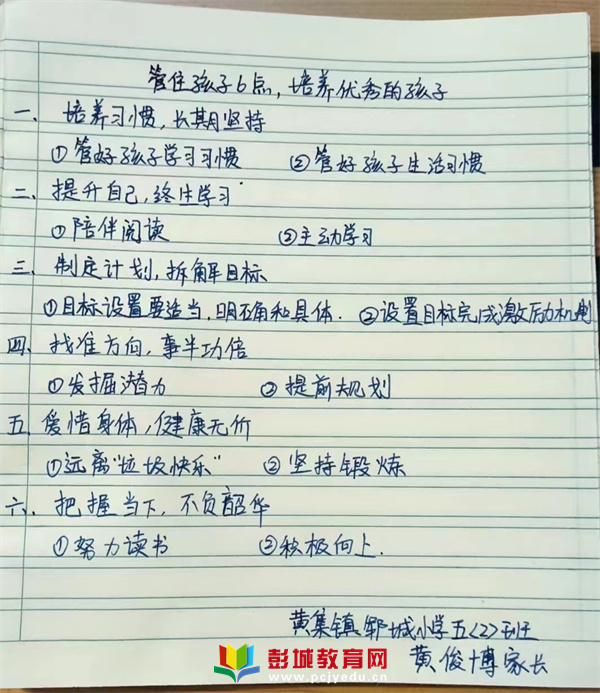 管住孩子6点,培养优秀的孩子
一、培养习惯,长期坚持
①管好孩子学习习惯 ②管好孩子生活习惯
二、提升自己,终生学习
①陪伴阅读 ②主动学习
三、制定计划,拆解目标
①目标设置要适当,明确和具体. ②设置目标完成激励机制
四、找准方向,事半功倍
①发掘潜力 ②提前规划
五、爱惜身体,健康无价
①远离“垃圾快乐” ②坚持锻炼
六、把握当下,不负韶华
①努力读书 ②积极向上.
黄集镇郓城小学五<2>班
黄俊博家长
彭城教育网
www.pcjyedu.cn